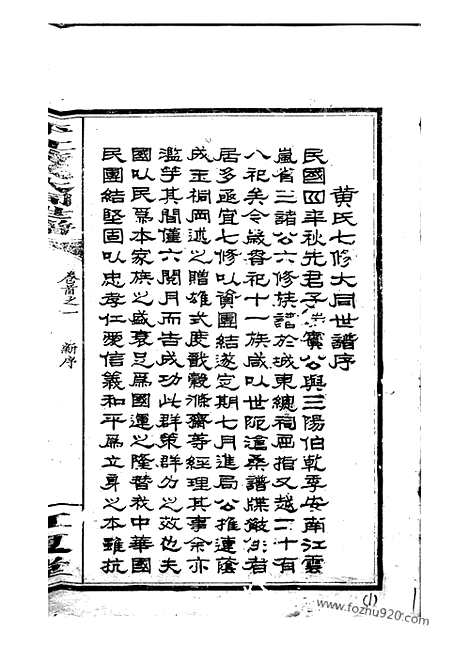 黃氏七修大同世譜序
民國四年秋先君子洪賓公與三陽伯乾季安南江雲
嵐省三諸公六修族譜於城東總祠更指又越二十有
八祀矣今歲春祀十一族咸以世阨滄桑譜牒散者
居多亟宜七修以資團結遂定期七月進局公推連蔭
成玉桐岡述之贈雄式度猷穀滌齋等經理其事余亦
濫竽其間僅六閱月而告成功此群策群力之效也夫
國以民為本家族之盛衰足為國運之隆替我中華國
民團結堅固以忠孝仁愛信義和平為立身之本雖抗
卷首之一
新序
江夏堂
(1)
www.fozhu920.com